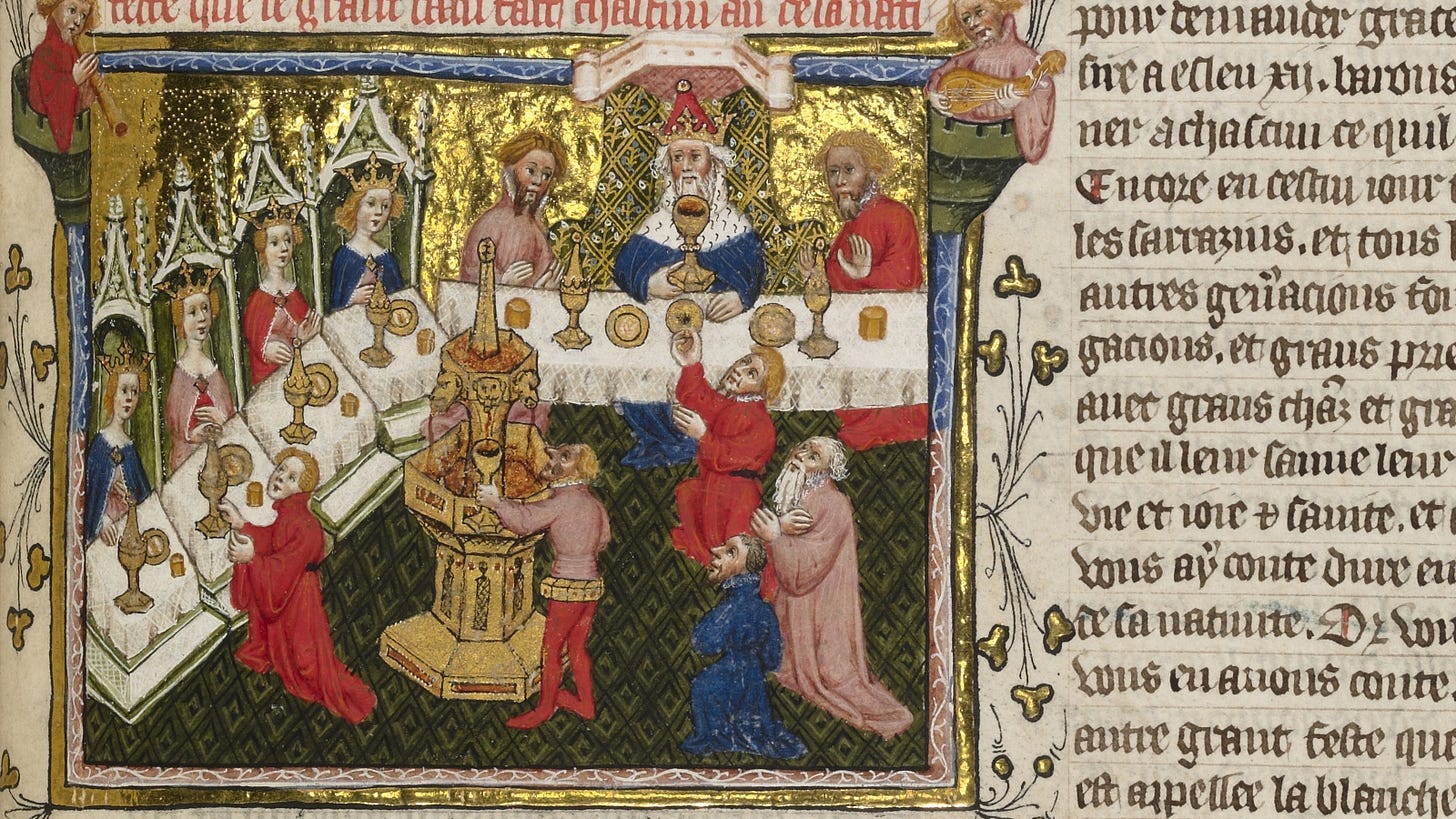 feste que le grant caan fait chascun an de sa nati
pour demander grace
sire a esleu xij. barons
ner a chascun ce quil
Encore en cestui iour
les sarrazins. et tous
autres gen̄acions fon
gacions. et grans prie
auec grans chāz et gra
que il leur sauue leur
vie et ioie ⁊ sainte. et
vous aẏ conte dure en
de sa natiuite. Or vou
vous en auons conte
autre grant feste qui
est appellee la blanche